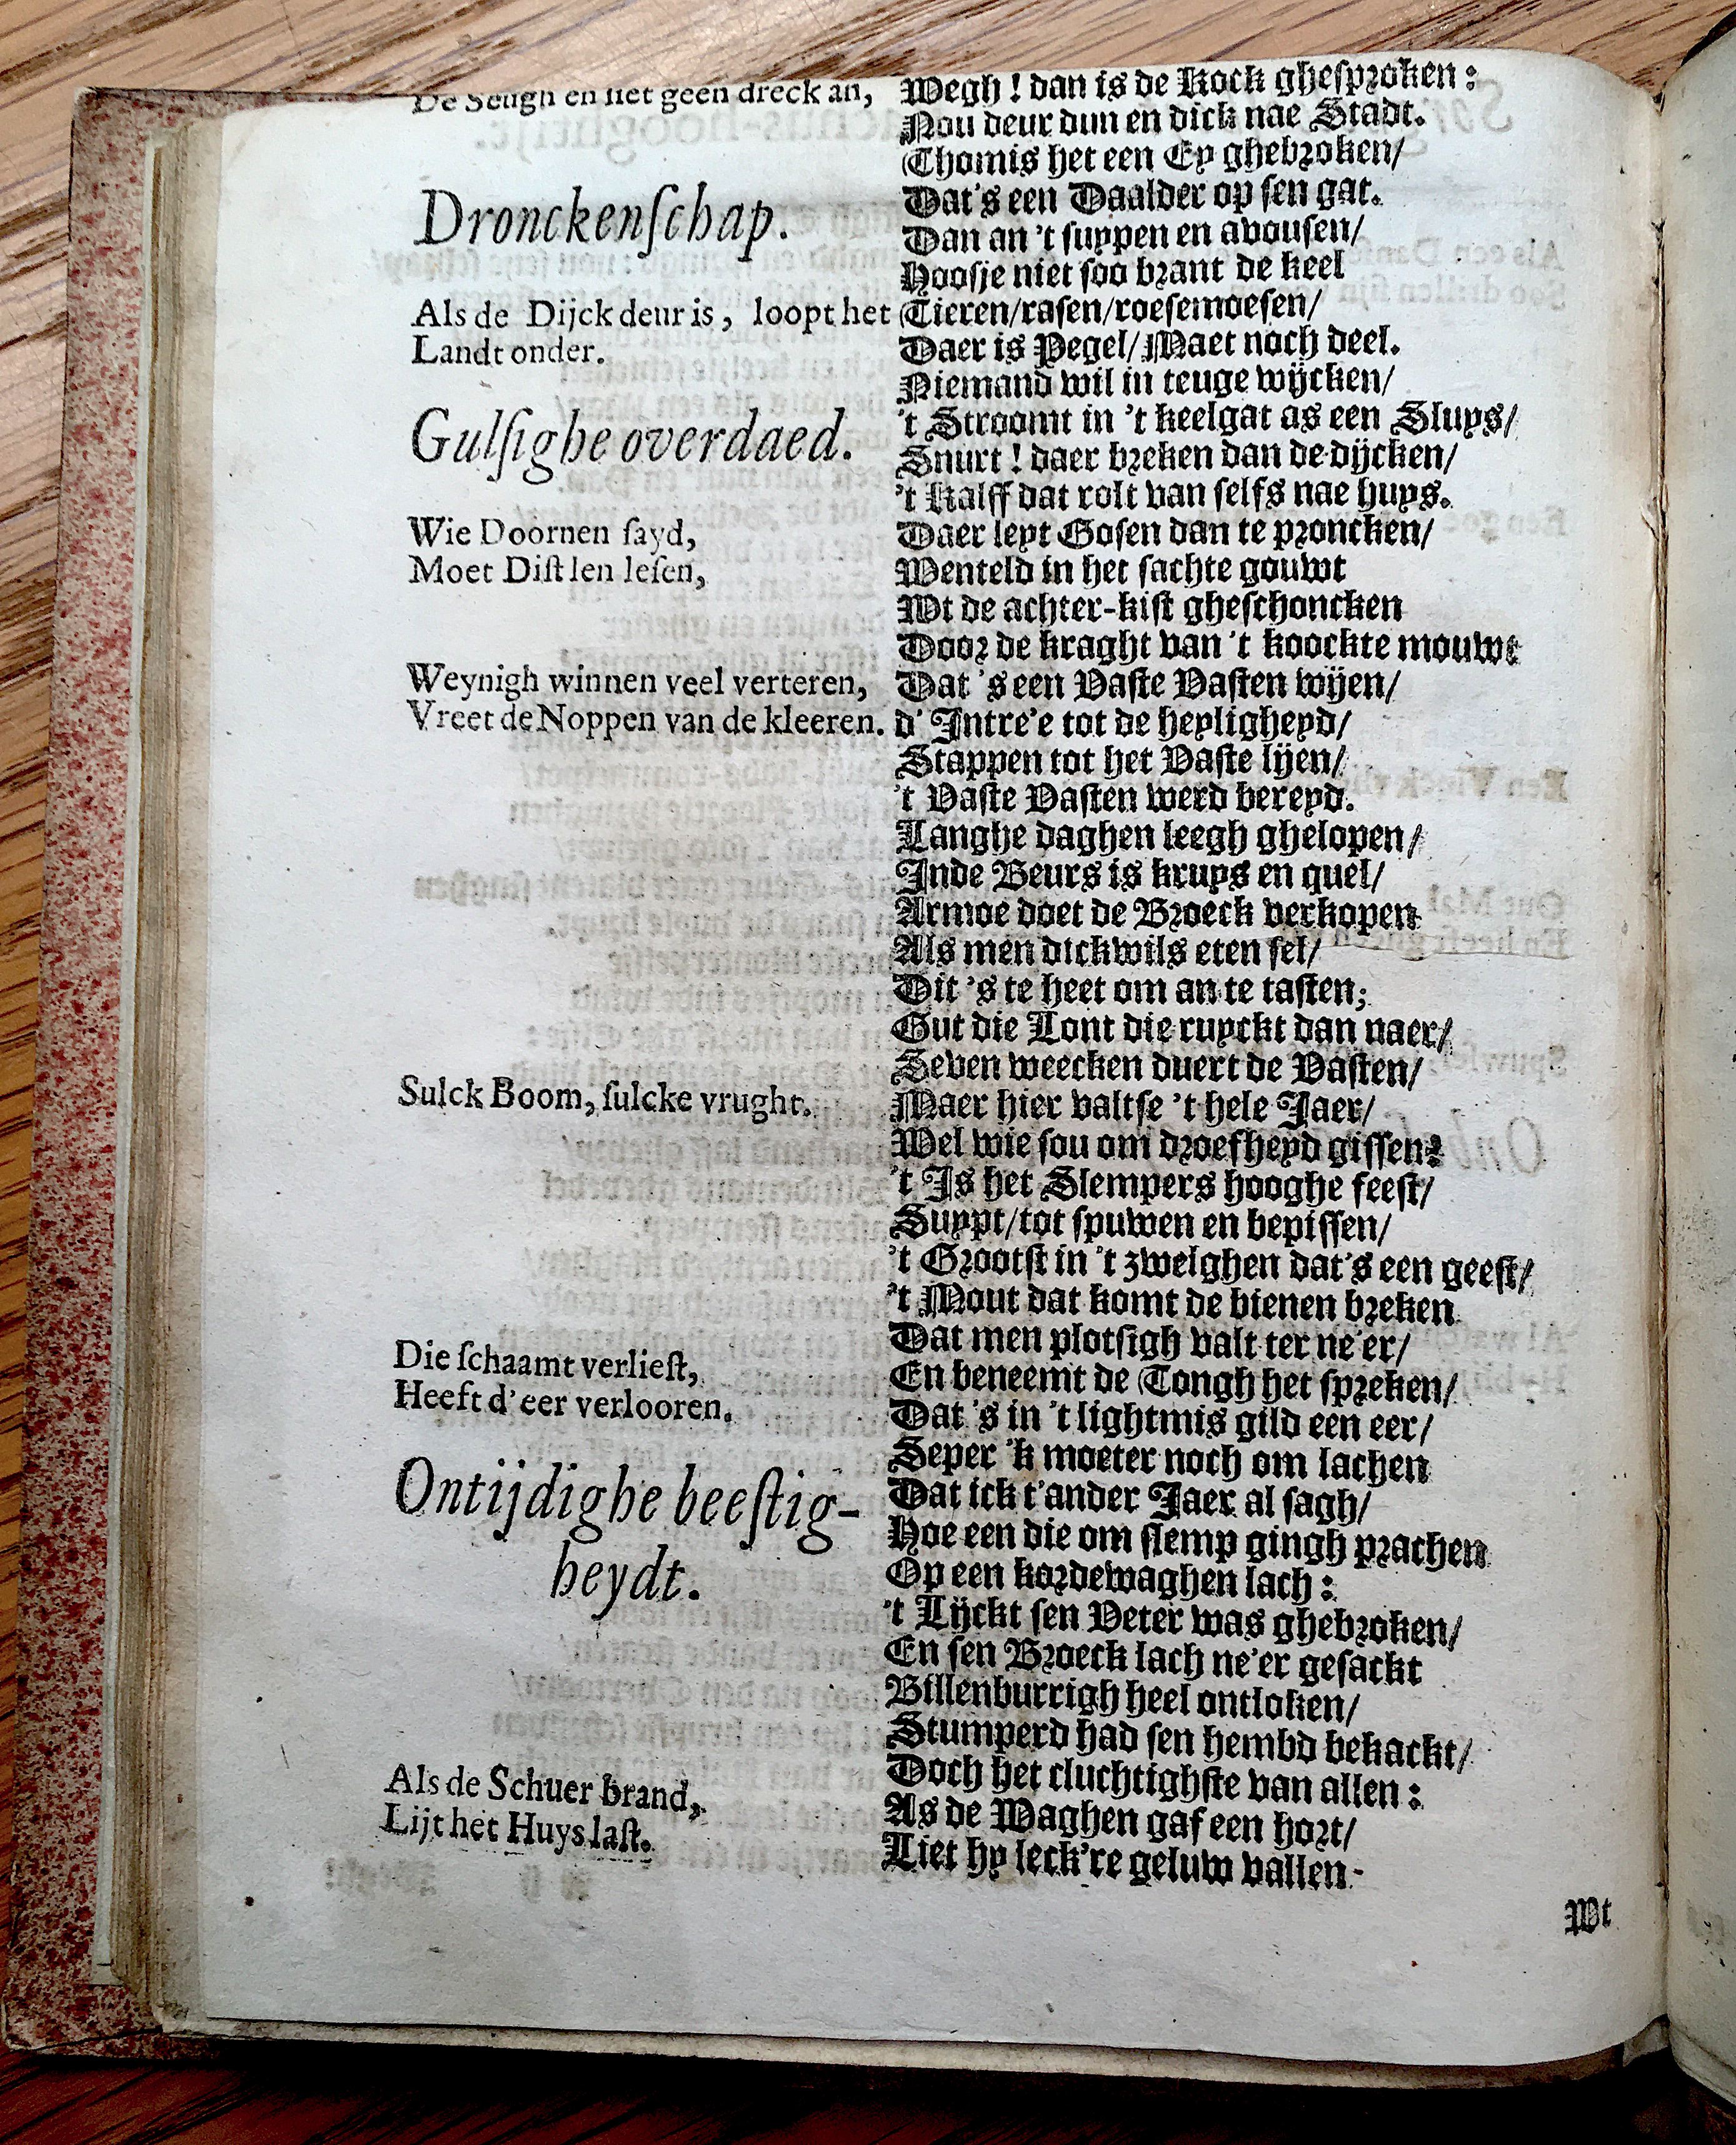 De Seugh en siet geen dreck an,
Dronckenſchap.
Als de Dijck deur is, loopt het
Landt onder.
Gulſighe overdaed.
Wie Doornen ſayd,
Moet Diſtlen leſen,
Weynigh winnen veel verteren,
Vreet de Noppen van de kleeren.
Sulck Boom, ſulcke vrught.
Die ſchaamt verlieſt,
Heeft d'eer verlooren.
Ontijdighe beeſtig-
heydt.
Als de Schuer brand,
Lijt het Huys laſt.
Wegh! dan is de Kock gheſproken:
Nou deur dun en dick nae Stadt.
Thomis het een Ey ghebroken/
Dat's een Daalder op ſen gat.
Dan an 't ſuypen en avouſen/
Hoosje niet ſoo brant de keel
Tieren/raſen/roeſemoeſen/
Daer is Pegel/Maet noch deel.
Niemand wil in teuge wijcken/
't Stroomt in 't keelgat as een Sluys/
Snurt! daer breken dan de dijcken/
't Kalff dat rolt van ſelfs nae huys.
Daer leyt Goſen dan te proncken/
Wenteld in het ſachte gouwt
Wt de achter-kiſt gheſchoncken
Door de kraght van 't koockte mouwt
Dat 's een Vaſte Vaſten wijen/
d' Intre'e tot de heyligheyd/
Stappen tot het Vaſte lijen/
't Vaſte Vaſten werd bereyd.
Langhe daghen leegh ghelopen/
Inde Beurs is kruys en quel/
Armoe doet de Broeck verkopen
Als men dickwils eten ſel/
Dit 's te heet om an te taſten;
Gut die Lont die ruyckt dan naer/
Seven weecken duert de Vaſten/
Maer hier valtſe 't hele Jaer/
Wel wie ſou om droefheyd giſſen?
't Is het Slempers hooghe feeſt/
Suypt/tot ſpuwen en bepiſſen/
't Grootſt in 't zwelghen dat's een geeſt/
't Mout dat komt de bienen breken
Dat men plotſigh valt ter ne'er/
En beneemt de Tongh het ſpreken/
Dat 's in 't lightmis gild een eer/
Seper 'k moeter noch om lachen
Dat ick t'ander Jaer al ſagh/
Hoe een die om ſlemp gingh prachen
Op een kordewaghen lach:
't Lijckt ſen Veter was ghebroken/
En ſen Broeck lach ne'er geſackt
Billenburrigh heel ontloken/
Stumperd had ſen hembd bekackt/
Doch het cluchtighſte van allen:
As de Waghen gaf een hort/
Liet hy leck're geluw vallen
Wt